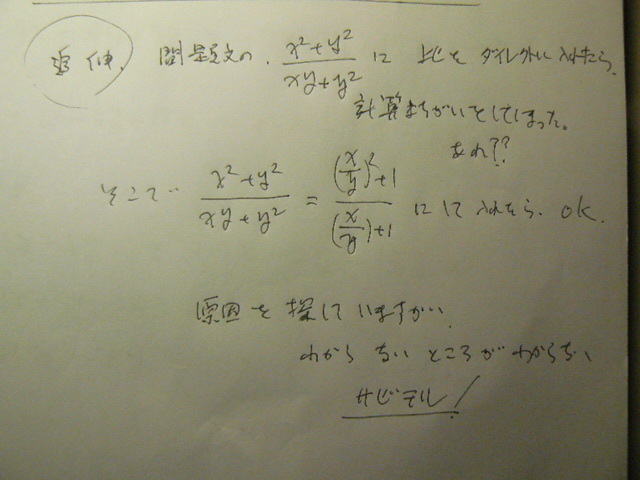 追伸. 問題文の. \frac{x^2+y^2}{xy+y^2} に 上じを ダイレクトに入れたら.
計算まちがいをしてしまった。
あれ??
そこで \frac{x^2+y^2}{xy+y^2} = \frac{(\frac{x}{y})^2+1}{(\frac{x}{y})+1} にして 入れたら. OK.
原因を 探していますが.
わからないところが わからない
サビテル!